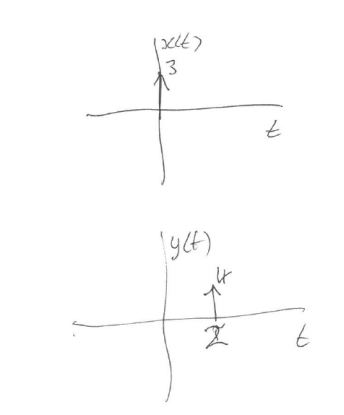 x(t)
3
t
y(t)
4
2
t